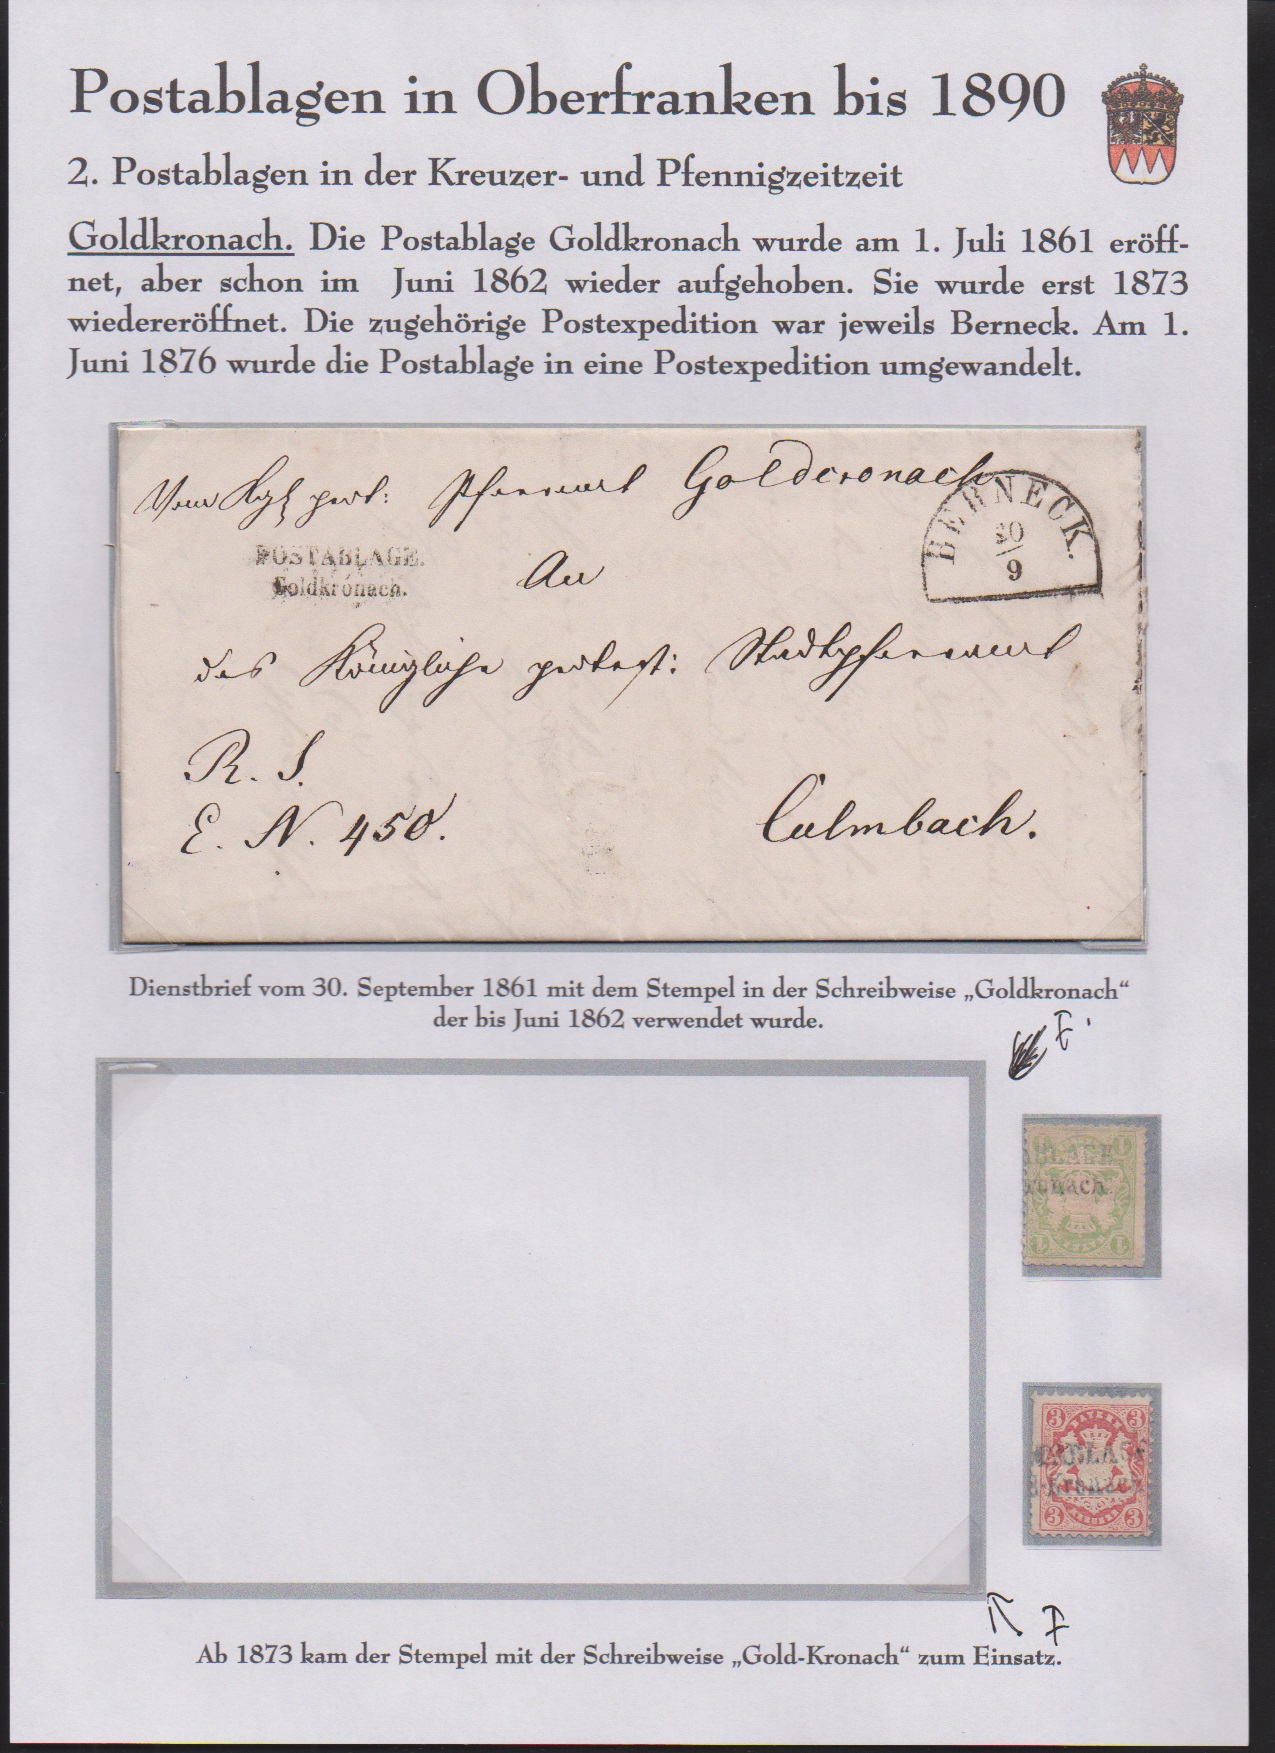 Postablagen in Oberfranken bis 1890
2. Postablagen in der Kreuzer- und Pfennigzeitzeit
Goldkronach. Die Postablage Goldkronach wurde am 1. Juli 1861 eröff-
net, aber schon im Juni 1862 wieder aufgehoben. Sie wurde erst 1873
wiedereröffnet. Die zugehörige Postexpedition war jeweils Berneck. Am 1.
Juni 1876 wurde die Postablage in eine Postexpedition umgewandelt.
Vom Kgl prot: Pfarramt Goldcronach
BERNECK.
30
9
POSTABLAGE.
Goldkronach.
An
das Königliche protest: Stadtpfarramt
R. S.
E. N. 450.
Culmbach.
Dienstbrief vom 30. September 1861 mit dem Stempel in der Schreibweise „Goldkronach“
der bis Juni 1862 verwendet wurde.
ABLAGE
kronach
1
1
1
1
3
BAYERN
3
ABLAGE
Kronach
3
KREUZER
3
Ab 1873 kam der Stempel mit der Schreibweise „Gold-Kronach“ zum Einsatz.